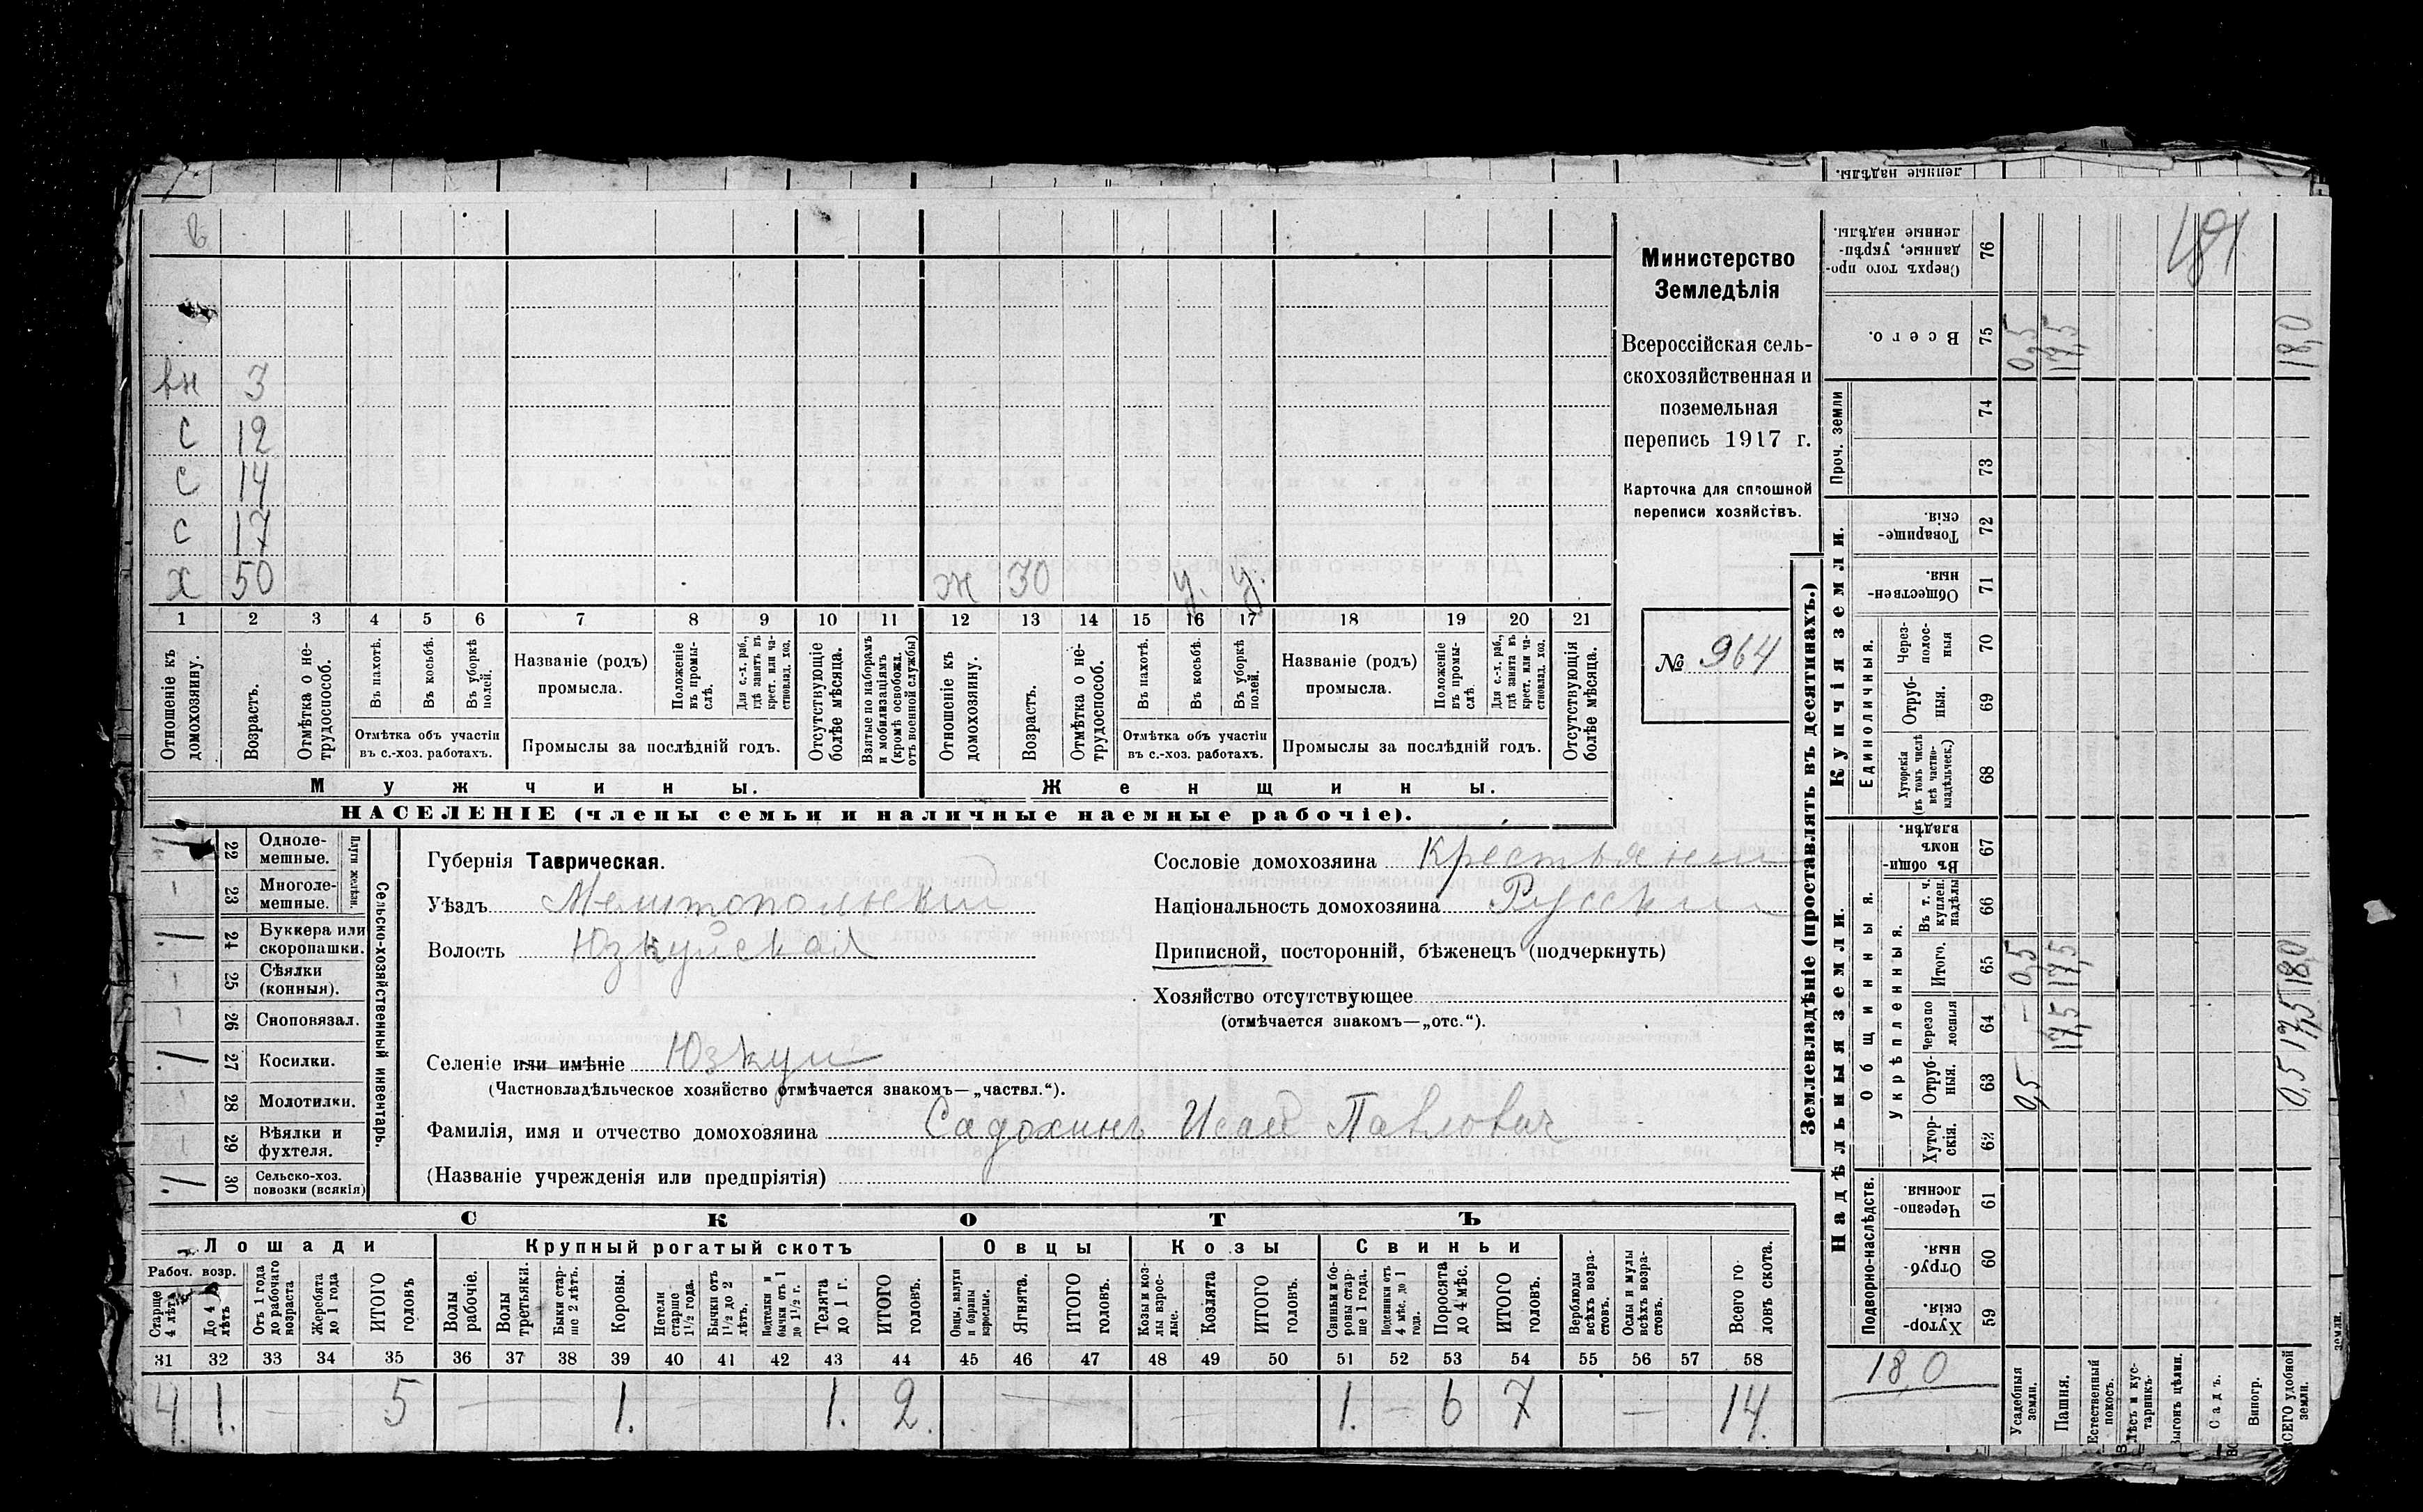 ленные надѣлы.
в
вн 3
с 12
с 14
с 17
х 50 ж 30 у. у.
1 2 3 4 5 6 7 8 9 10 11 12 13 14 15 16 17 18 19 20 21
Отношеніе къ домохозяину.
Возрастъ.
Отмѣтка о нетрудоспособ.
Въ пахотѣ.
Въ косьбѣ.
Въ уборкѣ полей.
Отмѣтка объ участіи
въ с.-хоз. работахъ.
Названіе (родъ)
промысла.
Положеніе въ промыслѣ.
Для с.-х. раб., гдѣ занятъ въ крест. или частновлад. хоз.
Промыслы за послѣдній годъ.
Отсутствующіе болѣе мѣсяца.
Взятые по наборамъ и мобилизаціямъ (кромѣ освобожд. отъ военной службы)
Отношеніе къ домохозяину.
Возрастъ.
Отмѣтка о нетрудоспособ.
Въ пахотѣ.
Въ косьбѣ.
Въ уборкѣ полей.
Отмѣтка объ участіи
въ с.-хоз. работахъ.
Названіе (родъ)
промысла.
Положеніе въ промыслѣ.
Для с.-х. раб., гдѣ занята въ крест. или частновлад. хоз.
Промыслы за послѣдній годъ.
Отсутствующія болѣе мѣсяца.
Мужчины. Женщины.
НАСЕЛЕНІЕ (члены семьи и наличные наемные рабочіе).
Министерство
Земледѣлія
Всероссійская сель-
скохозяйственная и
поземельная
перепись 1917 г.
Карточка для сплошной
переписи хозяйствъ.
№ 964
22 Одноле-
мешные.
23 Многоле-
мешные.
Плуги желѣзн.
24 Буккера или
скоропашки.
25 Сѣялки
(конныя).
26 Сноповязал.
27 Косилки.
28 Молотилки.
29 Вѣялки и
фухтеля.
30 Сельско-хоз.
повозки (всякія)
Сельско-хозяйственный инвентарь.
Губернія Таврическая.
Уѣздъ Мелитопольскій
Волость Юзкуйская
Селеніе или имѣніе Юзкуи
(Частновладѣльческое хозяйство отмѣчается знакомъ—„частвл.“).
Фамилія, имя и отчество домохозяина Садохинъ Исай Павлович
(Названіе учрежденія или предпріятія)
Сословіе домохозяина Крестьянин
Національность домохозяина Русский
Приписной, посторонній, бѣженецъ (подчеркнуть)
Хозяйство отсутствующее
(отмѣчается знакомъ—„отс.“).
СКОТЪ
Лошади Крупный рогатый скотъ Овцы Козы Свиньи
Рабоч. возр.
Старше 4 лѣтъ
До 4 лѣтъ
Отъ 1 года до рабочаго возраста
Жеребята до 1 года
ИТОГО головъ
Волы рабочіе.
Волы третьяки.
Быки старше 2 лѣтъ.
Коровы.
Нетели старше 1½ года.
Бычки отъ 1½ до 2 лѣтъ.
Подтелки и бычки отъ 1 до 1½ г.
Телята до 1 г.
ИТОГО головъ.
Овцы, валухи и бараны взрослые.
Ягнята.
ИТОГО головъ.
Козы и козлы взрослые.
Козлята
ИТОГО головъ.
Свиньи и боровы старше 1 года.
Подсвинки отъ 4 мѣс. до 1 года.
Поросята до 4 мѣс.
ИТОГО головъ.
Верблюды всѣхъ возрастовъ.
Ослы и мулы всѣхъ возрастовъ.
Всего головъ скота.
31 32 33 34 35 36 37 38 39 40 41 42 43 44 45 46 47 48 49 50 51 52 53 54 55 56 57 58
4. 1. — 5 — 1. — 1. 2. — — 1. — 6 7 — 14.
Землевладѣніе (проставлять въ десятинахъ.)
Сверхъ того проданные, укрѣпленные надѣлы. 76 181
Всего. 75 0,5 17,5 18,0
Купчія земли.
Проч. земли 74
73
Товарищескія. 72
Общественныя. 71
Единоличныя.
Черезполосныя 70
Отрубныя. 69
Хуторскія (въ томъ числѣ всѣ частновладѣльческ.) 68
Надѣльныя земли.
Общинныя.
Въ общинномъ владѣн. 67
Укрѣпленныя.
Въ т. ч. куплен. надѣлы 66
Итого. 65 0,5 17,5 18,0
Черезполосныя 64 — 17,5 17,5
Отрубныя. 63 0,5 0,5
Хуторскія. 62
Подворно-наслѣдств.
Черезполосныя. 61
Отрубныя. 60
Хуторскія. 59
18,0
Усадебныя земли.
Пашня.
Естественный покосъ.
Лѣсъ и кустарникъ.
Выгонъ цѣлин.
Садъ.
Виногр.
ВСЕГО удобной земли.
земли.